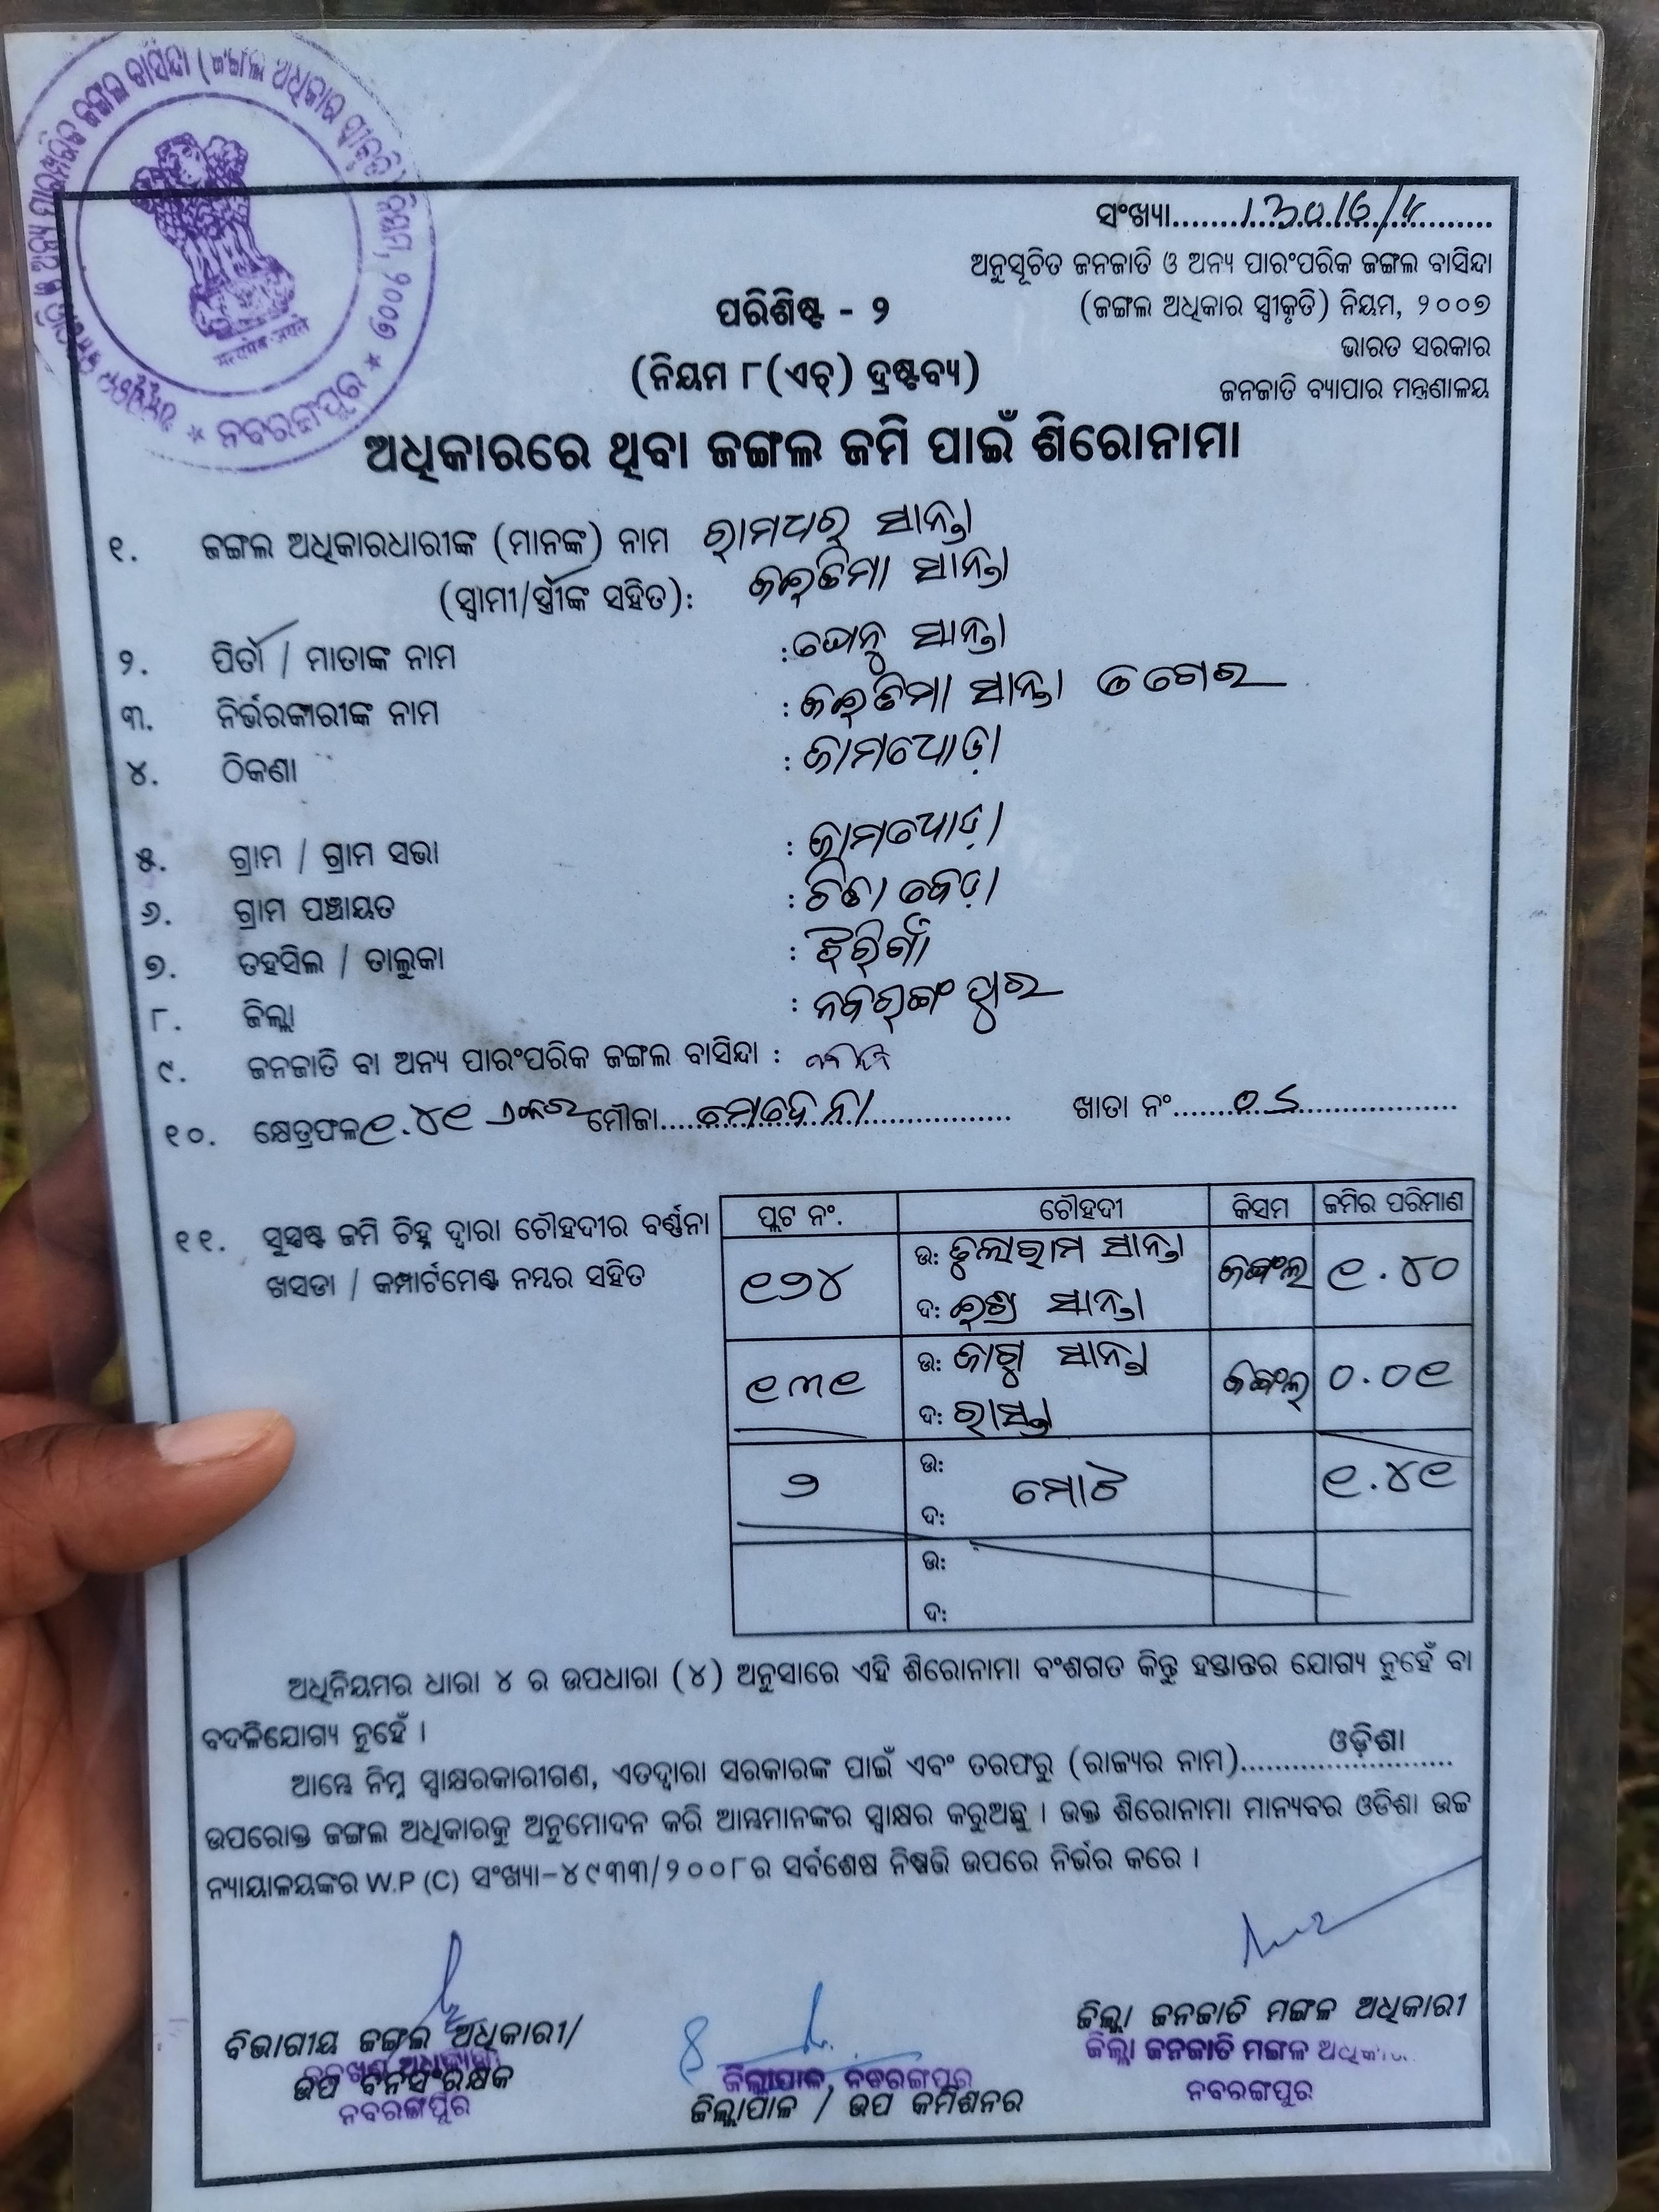 ସଂଖ୍ୟା
ଅନୁସୂଚିତ ଜନଜାତି ଓ ଅନ୍ୟ ପାରଂପରିକ ଜଙ୍ଗଲ ବାସିନ୍ଦା
(ଜଙ୍ଗଲ ଅଧିକାର ସ୍ୱୀକୃତି) ନିୟମ, ୨୦୦୭
ଭାରତ ସରକାର
ଜନଜାତି ବ୍ୟାପାର ମନ୍ତ୍ରଣାଳୟ
ପରିଶିଷ୍ଟ - ୨
(ନିୟମ ୮(ଏଚ୍) ଦ୍ରଷ୍ଟବ୍ୟ)
ଅଧିକାରରେ ଥିବା ଜଙ୍ଗଲ ଜମି ପାଇଁ ଶିରୋନାମା
୧. ଜଙ୍ଗଲ ଅଧିକାରଧାରୀଙ୍କ (ମାନଙ୍କ) ନାମ ରାମଧର ସାନ୍ତା
(ସ୍ୱାମୀ/ସ୍ତ୍ରୀଙ୍କ ସହିତ): ସାନ୍ତା
୨. ପିତା / ମାତାଙ୍କ ନାମ : ସାନ୍ତା
୩. ନିର୍ଭରକାରୀଙ୍କ ନାମ : ସାନ୍ତା
୪. ଠିକଣା :
୫. ଗ୍ରାମ / ଗ୍ରାମ ସଭା :
୬. ଗ୍ରାମ ପଞ୍ଚାୟତ :
୭. ତହସିଲ / ତାଲୁକା : ଝରିଗାଁ
୮. ଜିଲ୍ଲା : ନବରଙ୍ଗପୁର
୯. ଜନଜାତି ବା ଅନ୍ୟ ପାରଂପରିକ ଜଙ୍ଗଲ ବାସିନ୍ଦା :
୧୦. କ୍ଷେତ୍ରଫଳ ୧.୪୧ ଏକର ମୌଜା ଖାତା ନଂ
୧୧. ସୁସ୍ପଷ୍ଟ ଜମି ଚିହ୍ନ ଦ୍ୱାରା ଚୌହଦୀର ବର୍ଣ୍ଣନା
ଖସଡା / କମ୍ପାର୍ଟମେଣ୍ଟ ନମ୍ବର ସହିତ
ପ୍ଲଟ ନଂ. ଚୌହଦୀ କିସମ ଜମିର ପରିମାଣ
୧୨୪ ଉ: ତୁଲାରାମ ସାନ୍ତା ଜଙ୍ଗଲ ୧.୪୦
ଦ: ସାନ୍ତା
୧୩୧ ଉ: ସାନ୍ତା ଜଙ୍ଗଲ ୦.୦୧
ଦ: ରାସ୍ତା
୨ ଉ: ମୋଟ ୧.୪୧
ଦ:
ଉ:
ଦ:
ଅଧିନିୟମର ଧାରା ୪ ର ଉପଧାରା (୪) ଅନୁସାରେ ଏହି ଶିରୋନାମା ବଂଶଗତ କିନ୍ତୁ ହସ୍ତାନ୍ତର ଯୋଗ୍ୟ ନୁହେଁ ବା
ବଦଳିଯୋଗ୍ୟ ନୁହେଁ ।
ଆମ୍ଭେ ନିମ୍ନ ସ୍ୱାକ୍ଷରକାରୀଗଣ, ଏତଦ୍ୱାରା ସରକାରଙ୍କ ପାଇଁ ଏବଂ ତରଫରୁ (ରାଜ୍ୟର ନାମ) ଓଡ଼ିଶା
ଉପରୋକ୍ତ ଜଙ୍ଗଲ ଅଧିକାରକୁ ଅନୁମୋଦନ କରି ଆମ୍ଭମାନଙ୍କର ସ୍ୱାକ୍ଷର କରୁଅଛୁ । ଉକ୍ତ ଶିରୋନାମା ମାନ୍ୟବର ଓଡିଶା ଉଚ୍ଚ
ନ୍ୟାୟାଳୟଙ୍କର W.P (C) ସଂଖ୍ୟା-୪୯୩୩/୨୦୦୮ର ସର୍ବଶେଷ ନିଷ୍ପତ୍ତି ଉପରେ ନିର୍ଭର କରେ ।
ବିଭାଗୀୟ ଜଙ୍ଗଲ ଅଧିକାରୀ/
ଉପ ବନସଂରକ୍ଷକ
ନବରଙ୍ଗପୁର
ଜିଲ୍ଲାପାଳ, ନବରଙ୍ଗପୁର
ଜିଲ୍ଲାପାଳ / ଉପ କମିଶନର
ଜିଲ୍ଲା ଜନଜାତି ମଙ୍ଗଳ ଅଧିକାରୀ
ଜିଲ୍ଲା ଜନଜାତି ମଙ୍ଗଳ ଅଧିକାରୀ
ନବରଙ୍ଗପୁର